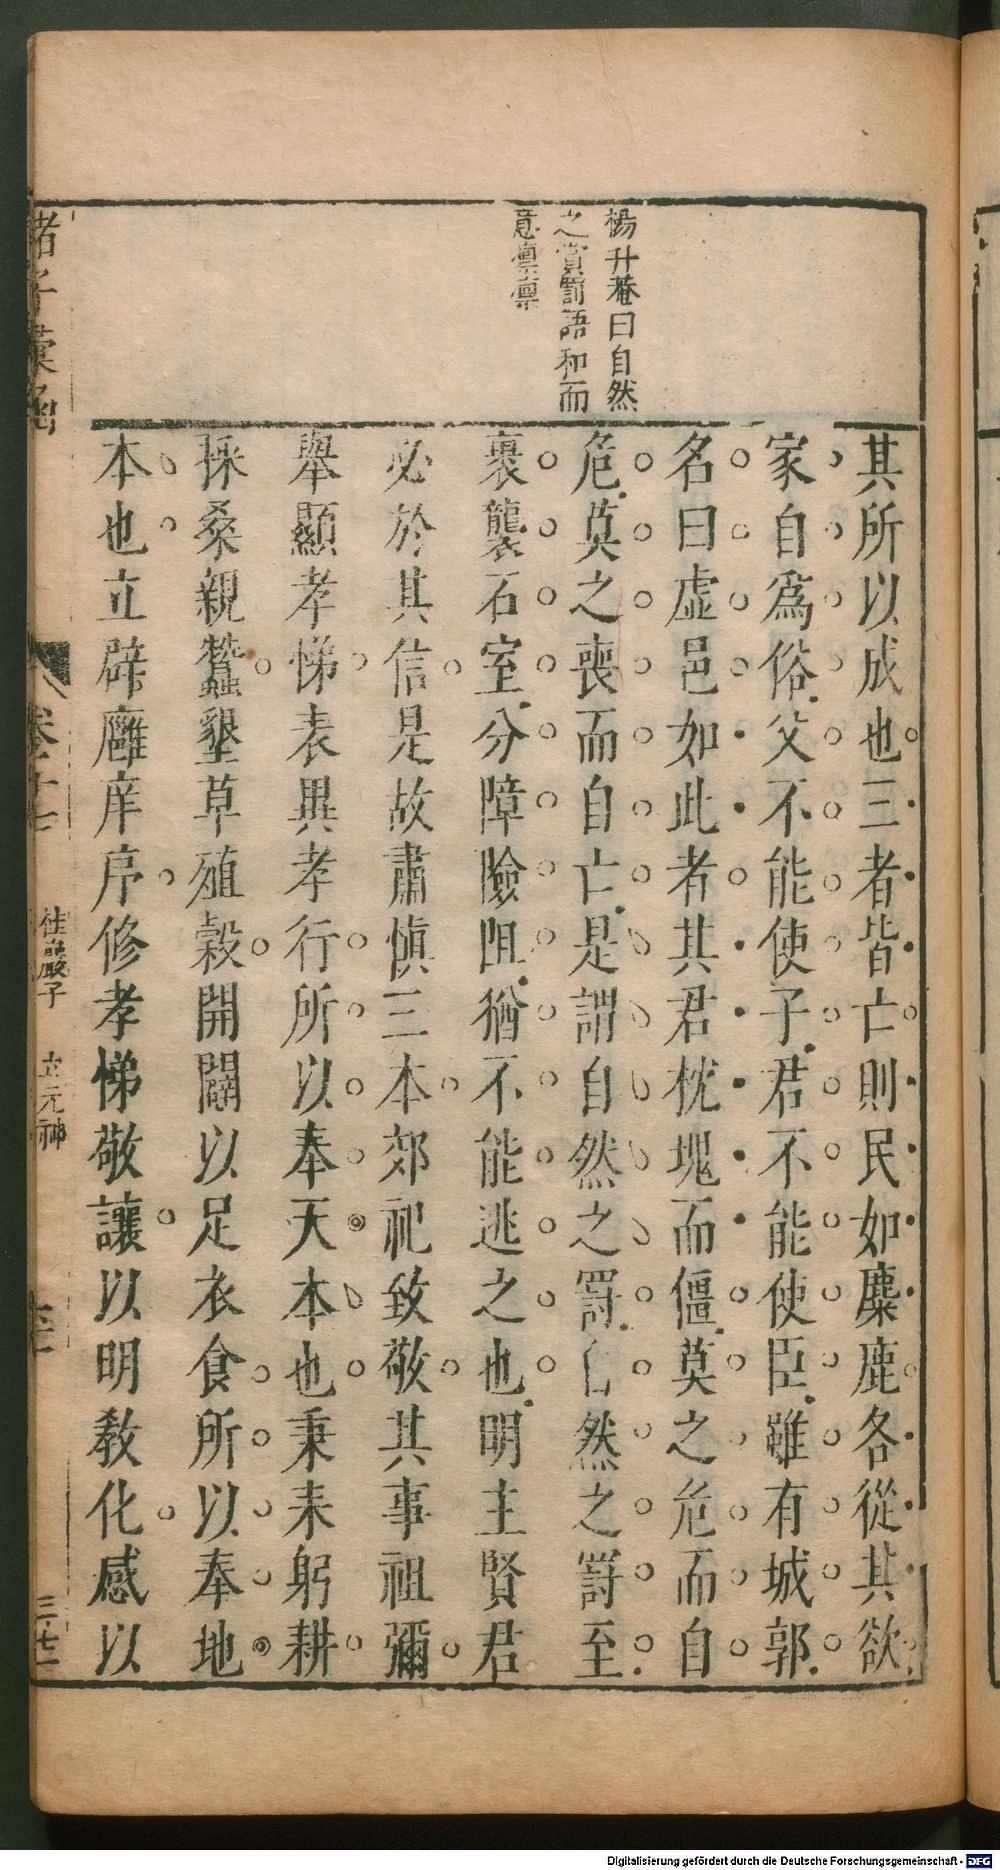 楊升菴曰自然
之賞罰語和而
意凛凛
其所以成也三者皆亡則民如麋鹿各從其欲
家自爲俗父不能使子君不能使臣雖有城郭
名曰虛邑如此者其君枕塊而僵莫之危而自
危莫之喪而自亡是謂自然之罰自然之罰至
裹襲石室分障險阻猶不能逃之也明主賢君
必於其信是故肅慎三本郊祀致敬其事祖彌
舉顯孝悌表異孝行所以奉天本也秉耒躬耕
採桑親蠶墾草殖穀開闢以足衣食所以奉地
本也立辟廱庠序修孝悌敬讓以明教化感以
諸子彙函
卷十七
桂巖子
立元神
三七
Digitalisierung gefördert durch die Deutsche Forschungsgemeinschaft - DFG